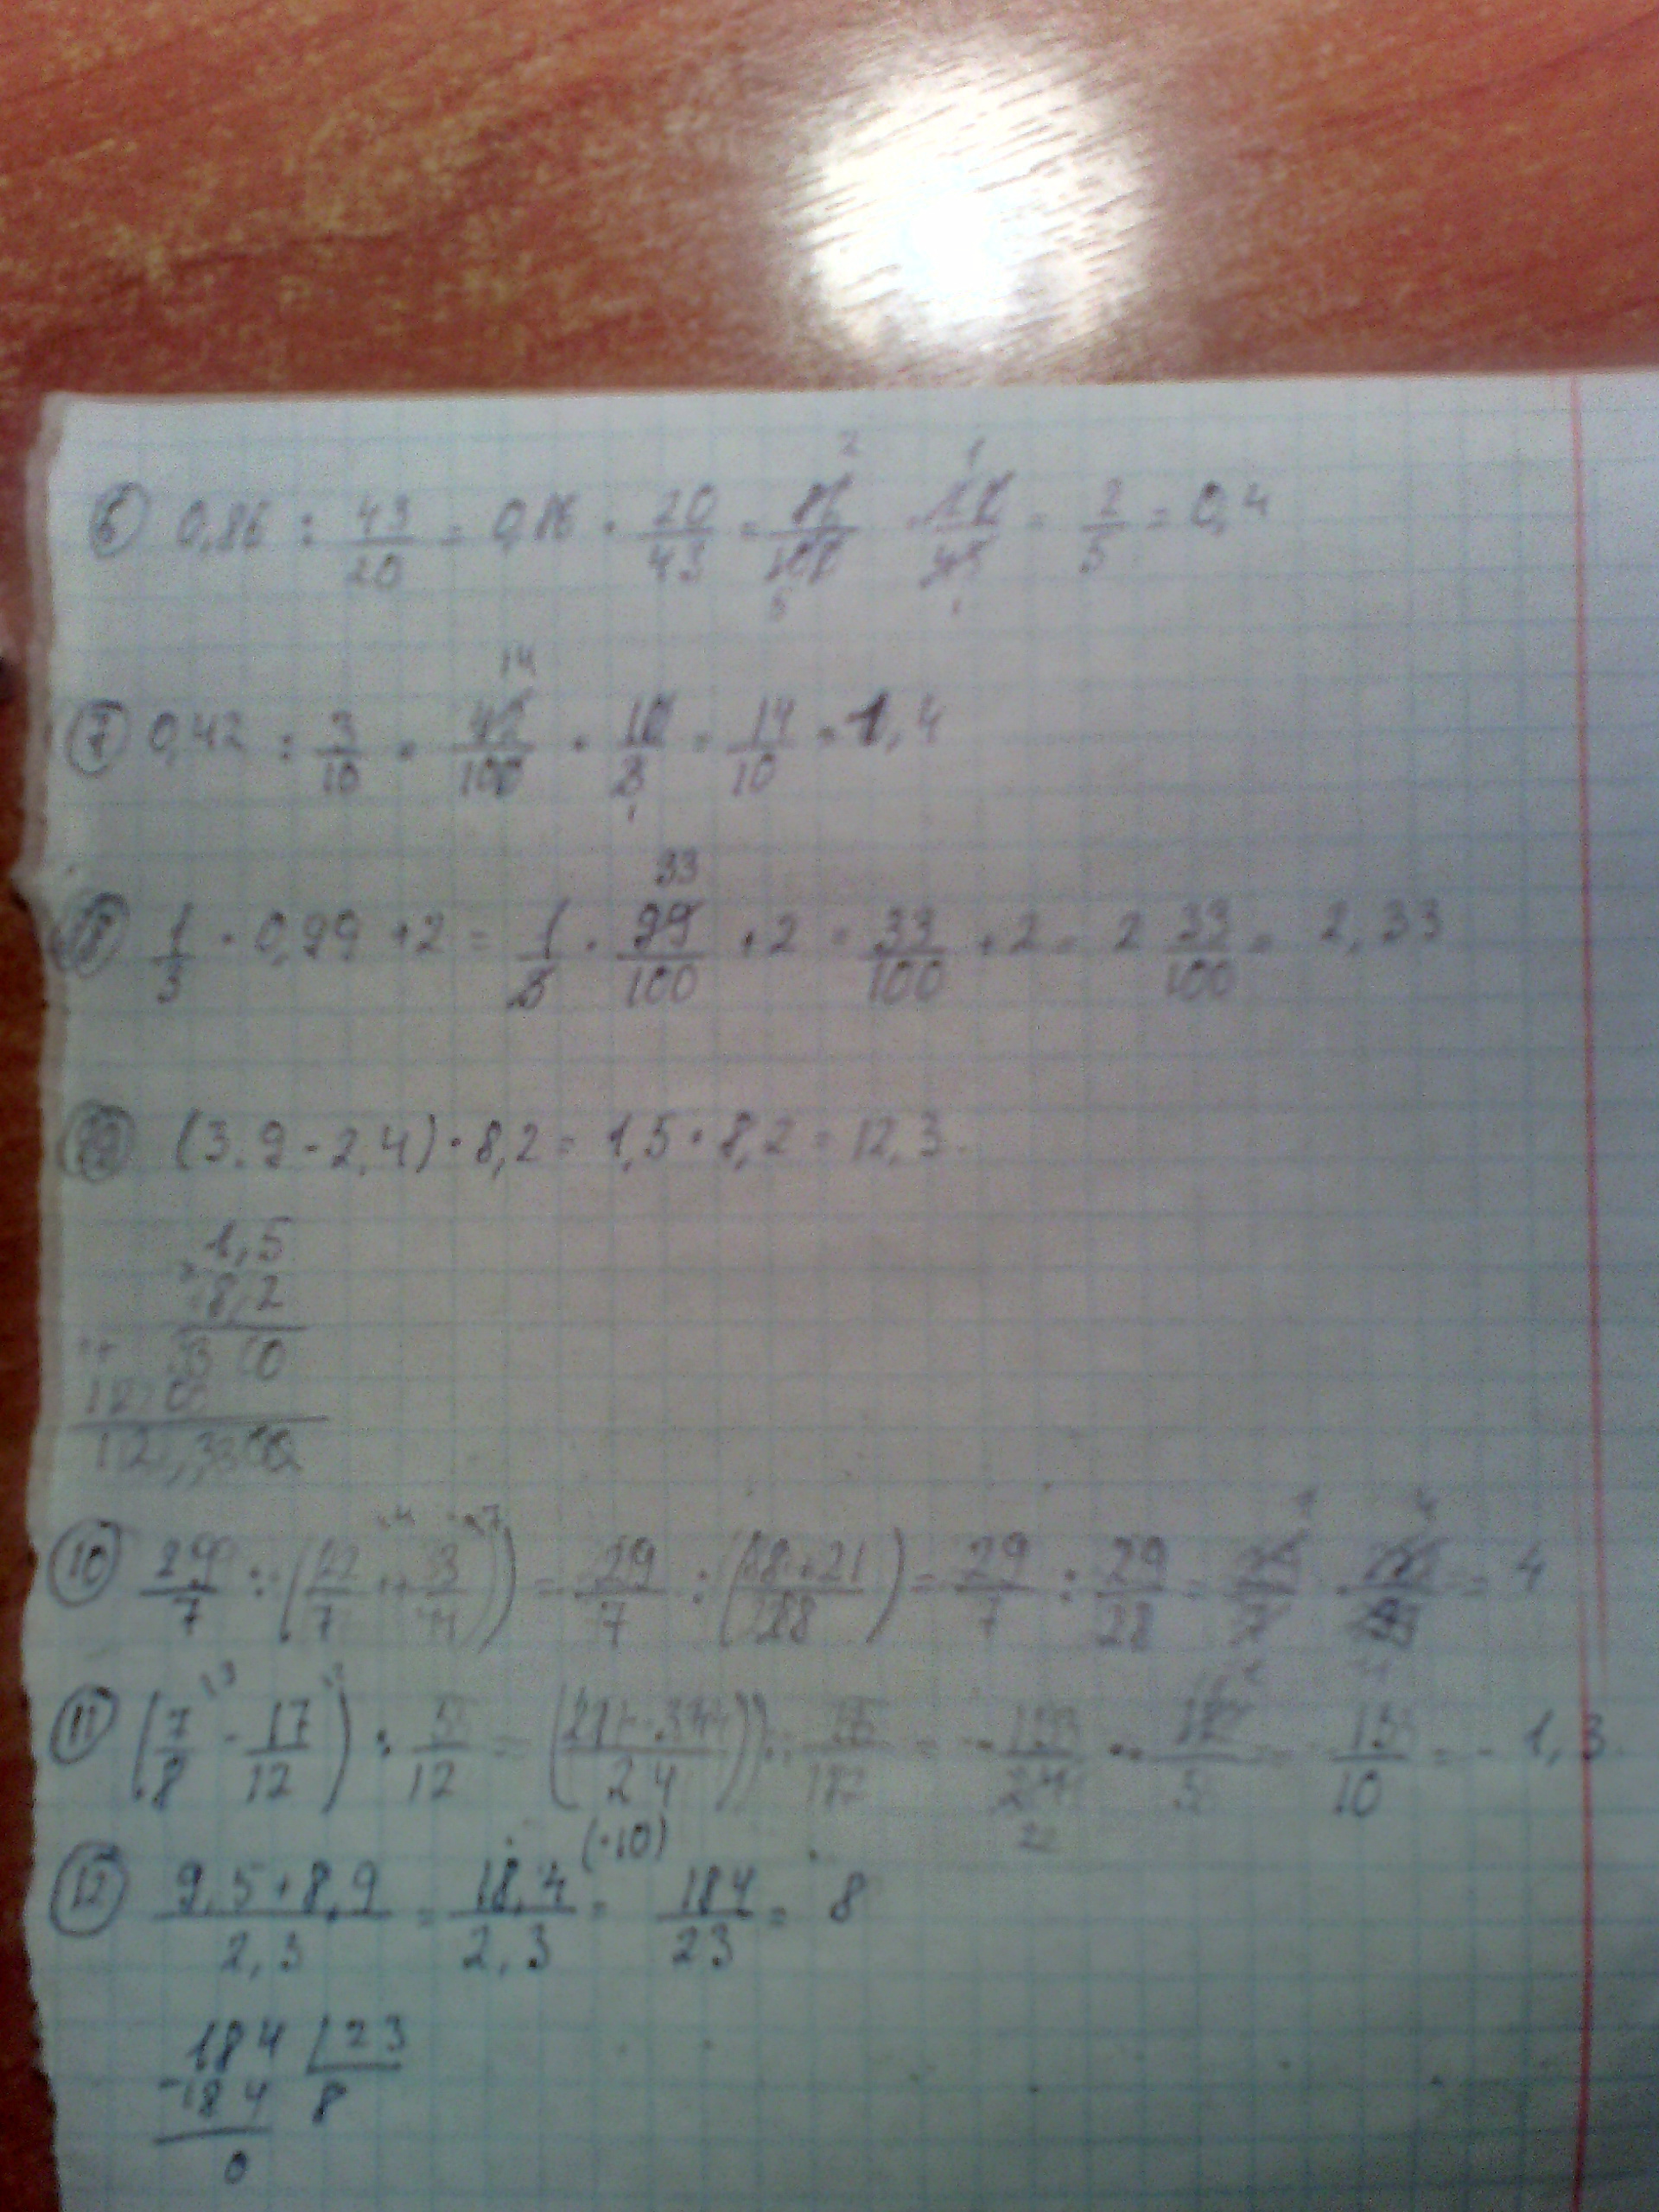 6 0,86 : 43/20 = 0,86 · 20/43 = 86/100 · 20/43 = 2/5 = 0,4
7 0,42 : 3/10 = 42/100 · 10/3 = 14/10 = 1,4
8 1/3 · 0,99 + 2 = 1/3 · 99/100 + 2 = 33/100 + 2 = 2 33/100 = 2,33
9 (3,9 - 2,4) · 8,2 = 1,5 · 8,2 = 12,3
1,5
8,2
10 29/7 : ( /7 + 3/4) = 29/7 : (8+21/28) = 29/7 : 29/28 = 4
11 (7/8 - 17/12) : 5/12 = (21-34/24) : 5/12 = - 13/24 · 12/5 = 13/10 = - 1,3
12 9,5+8,9/2,3 = 18,4/2,3 (·10) = 184/23 = 8
184 23
-184 8
0